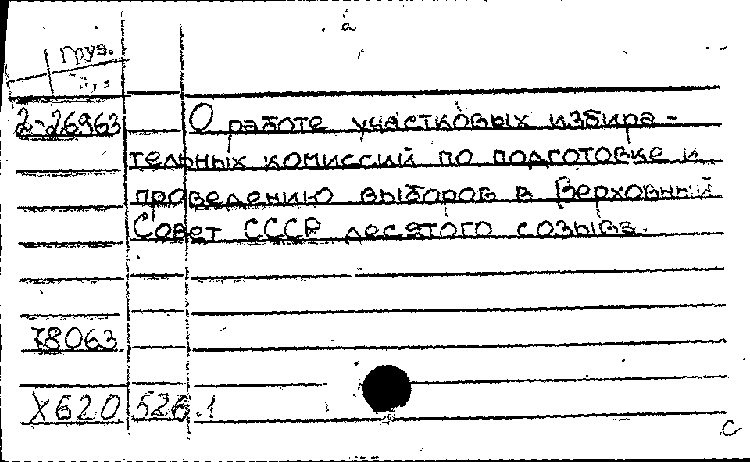 а
Груз.
2-26963 О работе участковых избира-
тельных комиссий по подготовке и
проведению выборов в Верховный
Совет СССР десятого созыва.
78063
X620 526.1
с